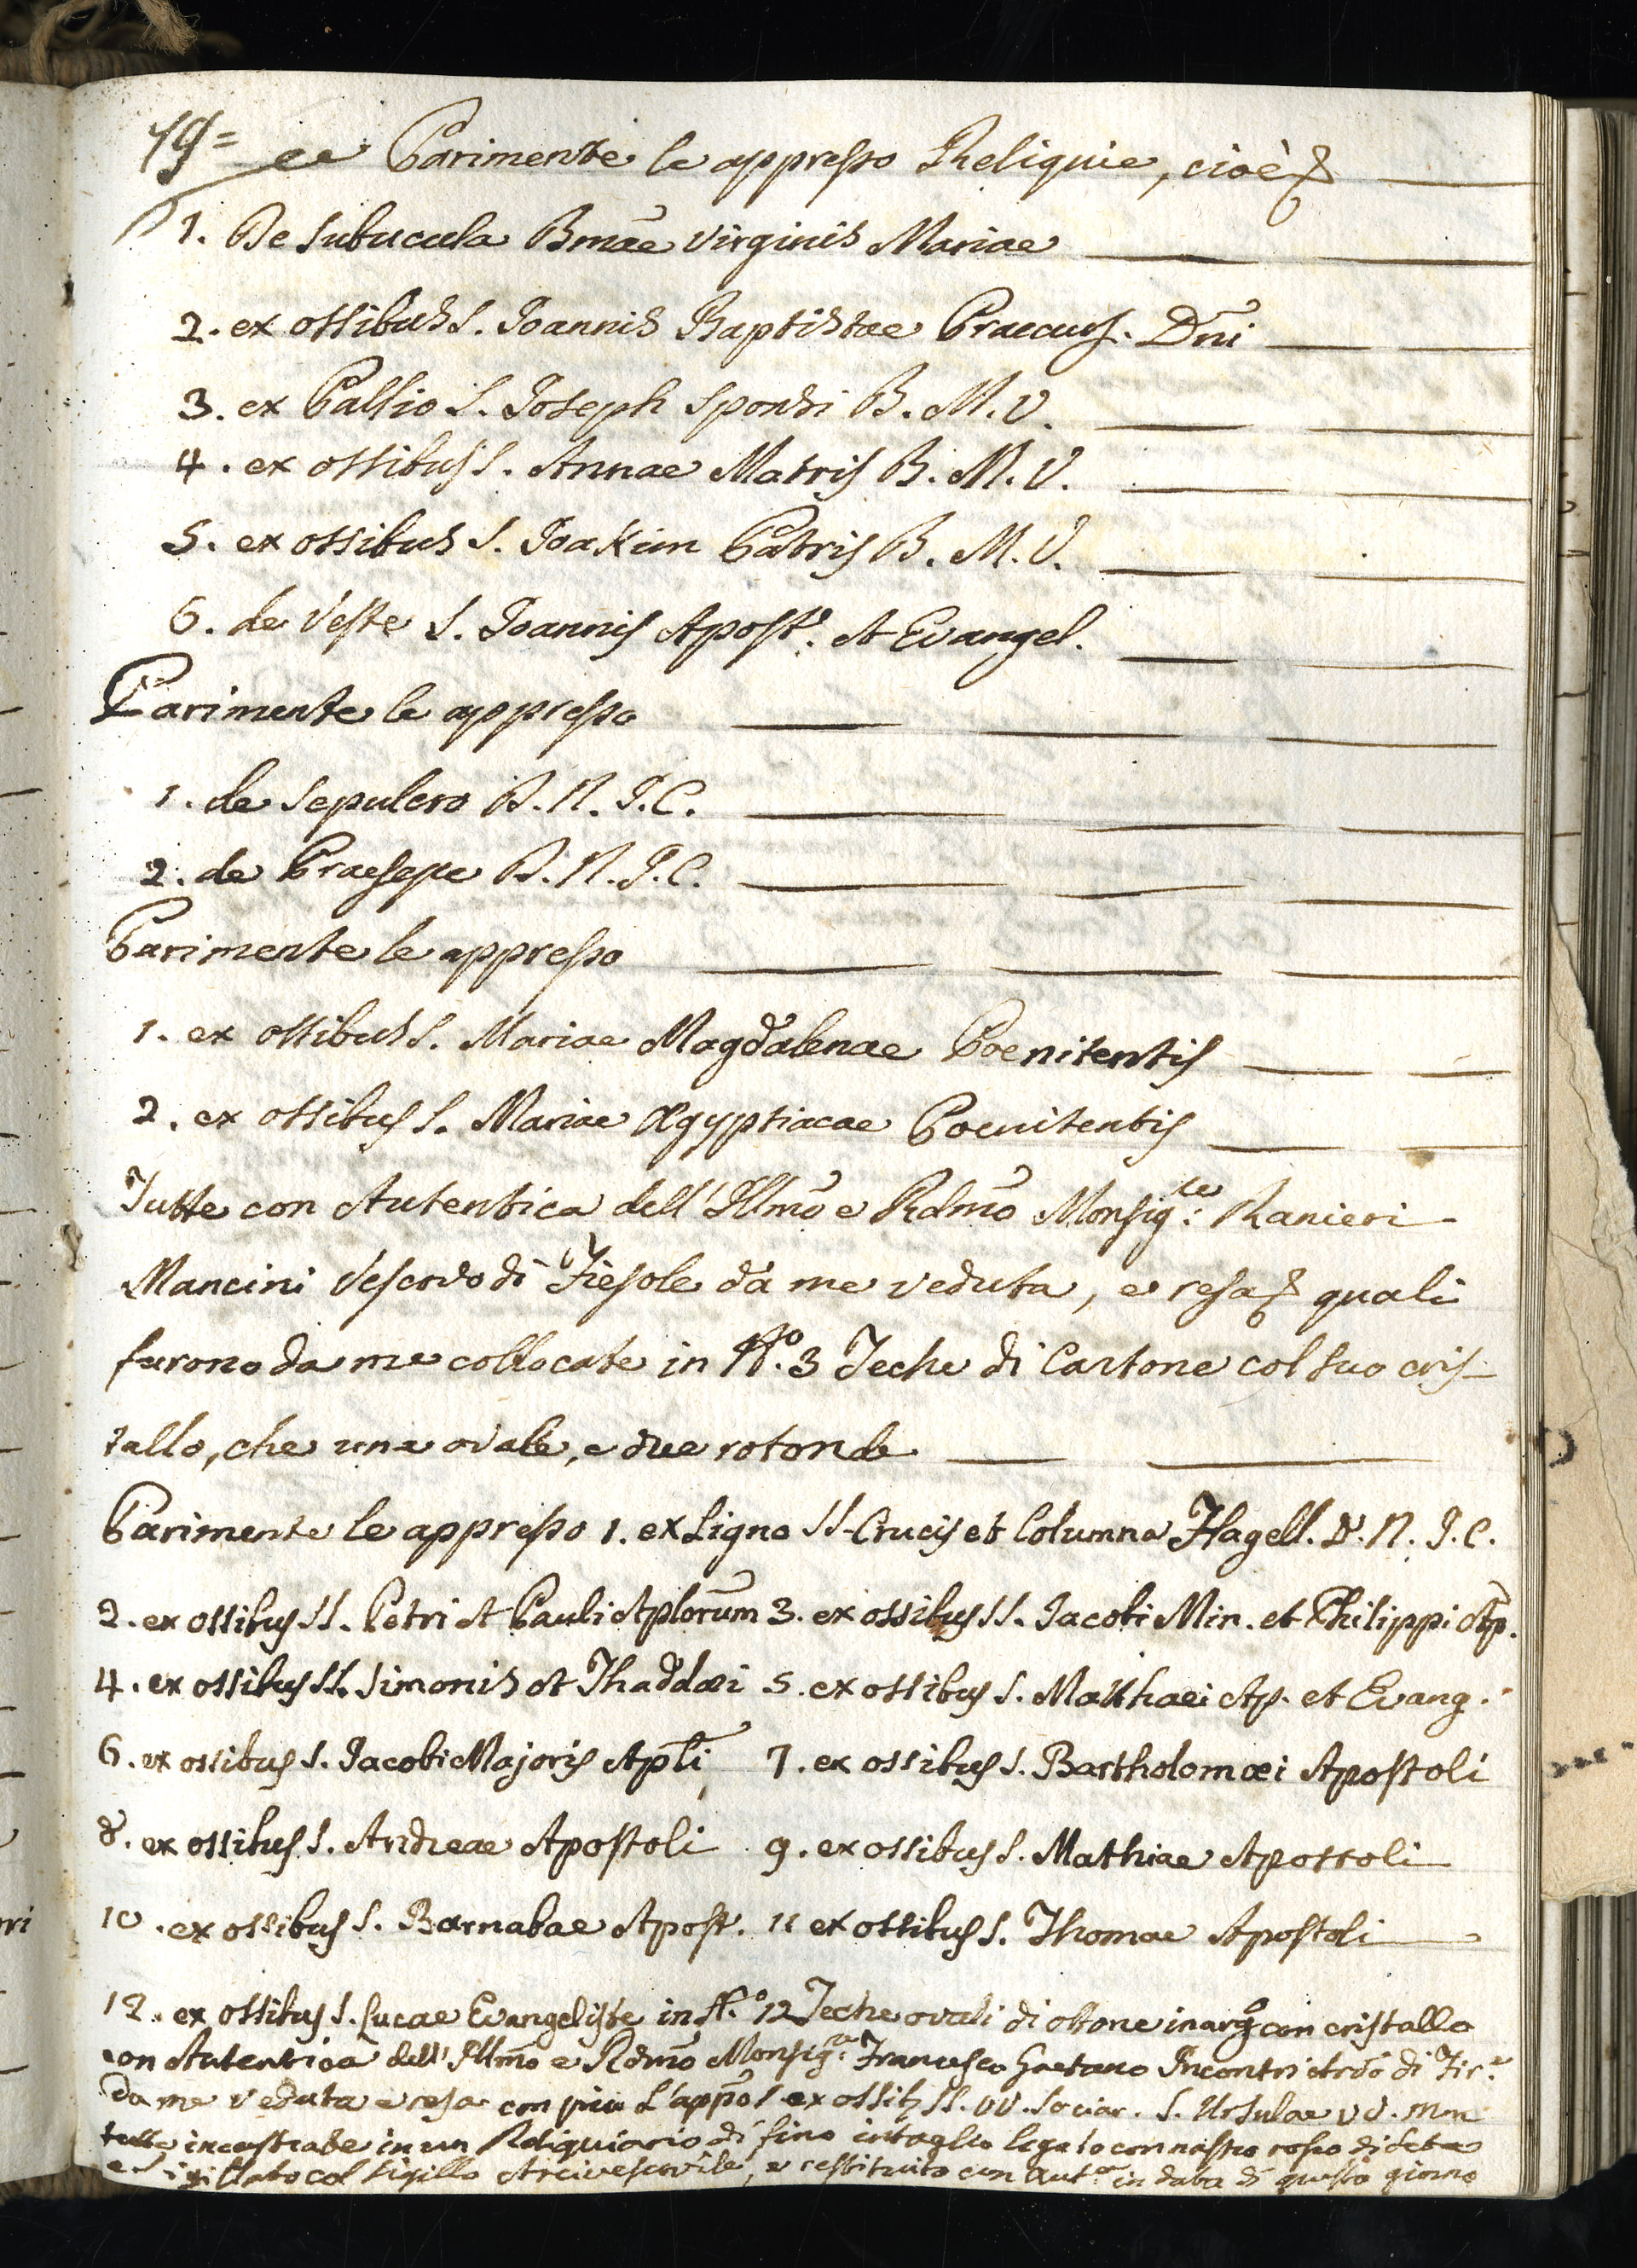 19= e Parimente le appresso Reliquie, cioè
1. De Subucula Bmãe Virginis Mariae
2. ex ossibus S. Joannis Baptistae Praecurs. Dñi
3. ex Pallio S. Joseph Sponsi B. M. V.
4. ex ossibus S. Annae Matris B. M. V.
5. ex ossibus S. Joakim Patris B. M. V.
6. de Veste S. Joannis Apost. et Evangel.
Parimente le appresso
1. de Sepulcro D. N. J. C.
2. de Praesepe D. N. J. C.
Parimente le appresso
1. ex ossibus S. Mariae Magdalenae Poenitentis
2. ex ossibus S. Mariae Ægyptiacae Poenitentis
Tutte con Autentica dell'Illmõ e Rdmõ Monsig:re Ranieri
Mancini Vescovo di Fiesole da me veduta, e resa quali
furono da me collocate in N.º 3 Teche di Cartone col suo cris-
tallo, che una ovale, e due rotonde
Parimente le appresso 1. ex Ligno SS. Crucis et Columna Flagell. D. N. J. C.
2. ex ossibus SS. Petri et Pauli Aplorũm 3. ex ossibus SS. Jacobi Min. et Philippi Ap.
4. ex ossibus SS. Simonis et Thaddæi 5. ex ossibus S. Matthaei Ap. et Evang.
6. ex ossibus S. Jacobi Majoris Apl̃i 7. ex ossibus S. Bartholomæi Apostoli
8. ex ossibus S. Andreae Apostoli 9. ex ossibus S. Mathiae Apostoli
10. ex ossibus S. Barnabae Apost. 11 ex ossibus S. Thomae Apostoli
12. ex ossibus S. Lucae Evangeliste in N.º 12 Teche ovali di ottone inarg.º con cristallo
con Autentica dell'Illmõ e Rdmõ Monsig:re Francesco Gaetano Incontri Arcivõ di Fir.e
da me veduta e resa con piu L'appõ 1 ex ossib. SS. VV. Sociar. S. Ursulae VV. Mm
tutte incastrate in un Reliquiario di fino intaglio legato con nastro rosso di seta
e Sigillato col Sigillo Arcivescovile, e restituito con Aut.ca in data di questo giorno